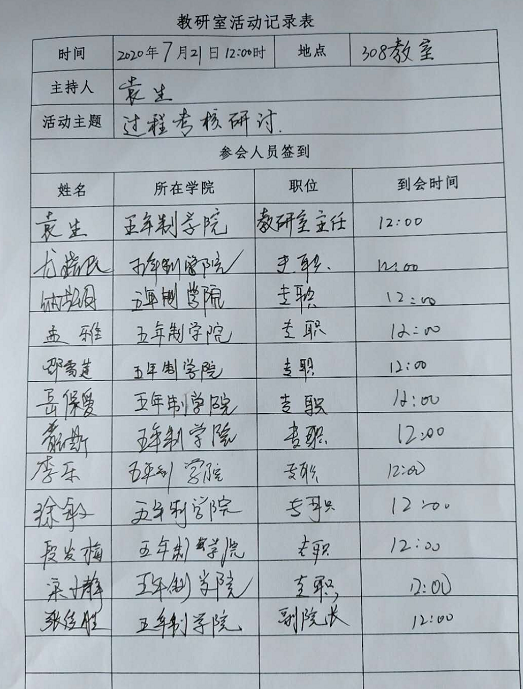 教研室活动记录表
时间 2020年7月21日12:00时 地点 308教室
主持人 袁生
活动主题 过程考核研讨.
参会人员签到
姓名 所在学院 职位 到会时间
袁生 五年制学院 教研室主任 12:00
五年制学院 专职 12:00
五年制学院 专职 12:00
孟雅 五年制学院 专职 12:00
五年制学院 专职 12:00
岳保爱 五年制学院 专职 12:00
五年制学院 专职 12:00
李乐 五年制学院 专职 12:00
徐敏 五年制学院 专职 12:00
五年制学院 专职 12:00
五年制学院 专职 12:00
五年制学院 副院长 12:00